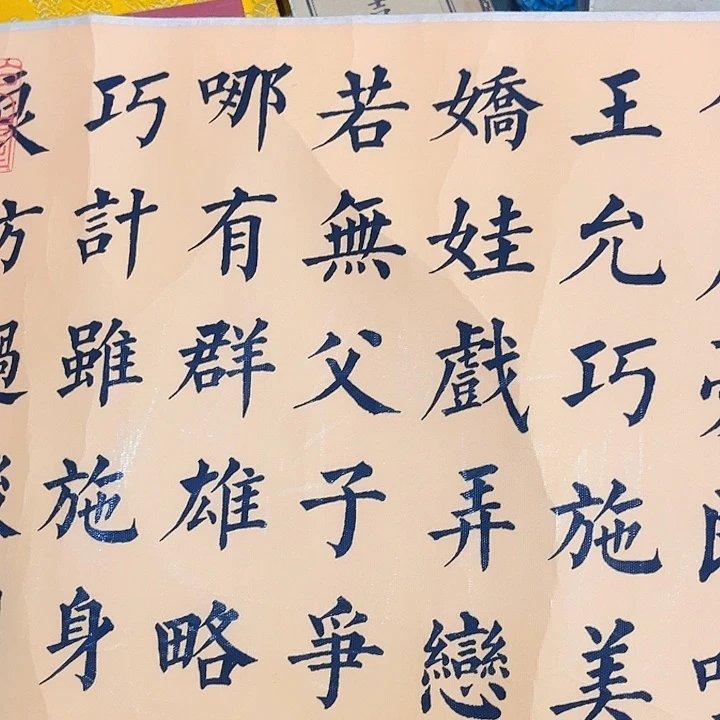 王允巧施美
嬌娃戲弄戀
若無父子爭
哪有群雄略
巧計雖施身